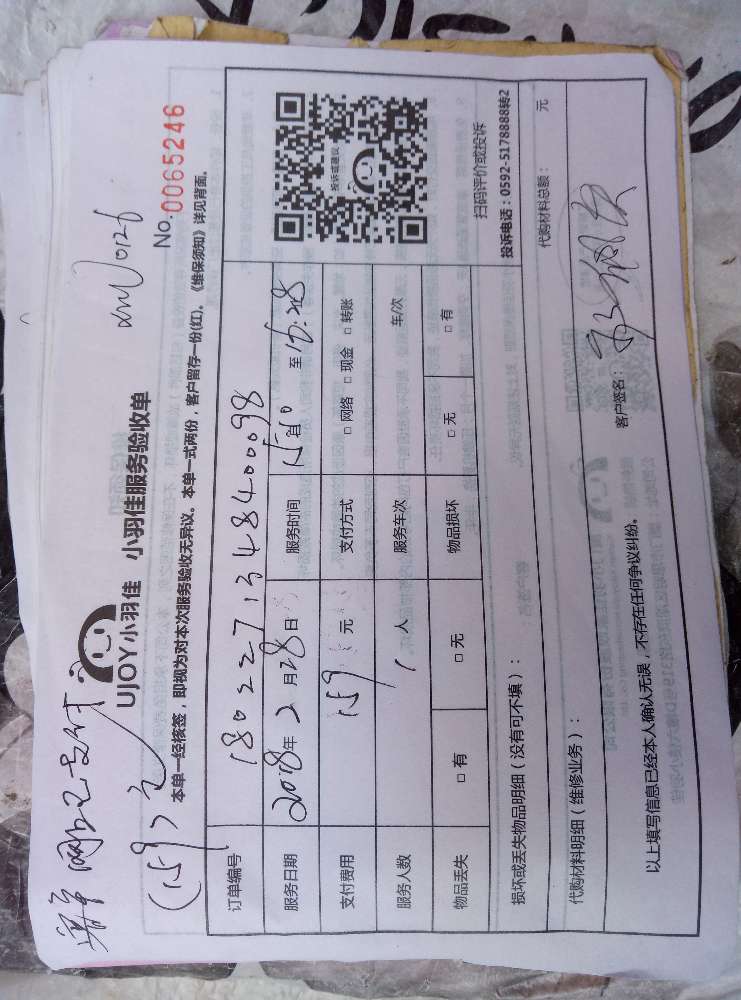 网上已支付
(159)元
xmU0126
UJOY小羽佳 小羽佳服务验收单
No. 0065246
本单一经核签,即视为对本次服务验收无异议。本单一式两份,客户留存一份(红)。《维保须知》详见背面。
订单编号 180227134840098
服务日期 2018年2月28日 服务时间 至16:28
支付费用 159元 支付方式 □ 网络 □ 现金 □ 转账
服务人数 1人 服务车次 车/次
物品丢失 □ 有 □ 无 物品损坏 □ 无 □ 有
投诉或建议
扫码评价或投诉
投诉电话:0592-5178888转2
损坏或丢失物品明细(没有可不填):
代购材料明细(维修业务): 代购材料总额: 元
以上填写信息已经本人确认无误,不存在任何争议纠纷。 客户签名: